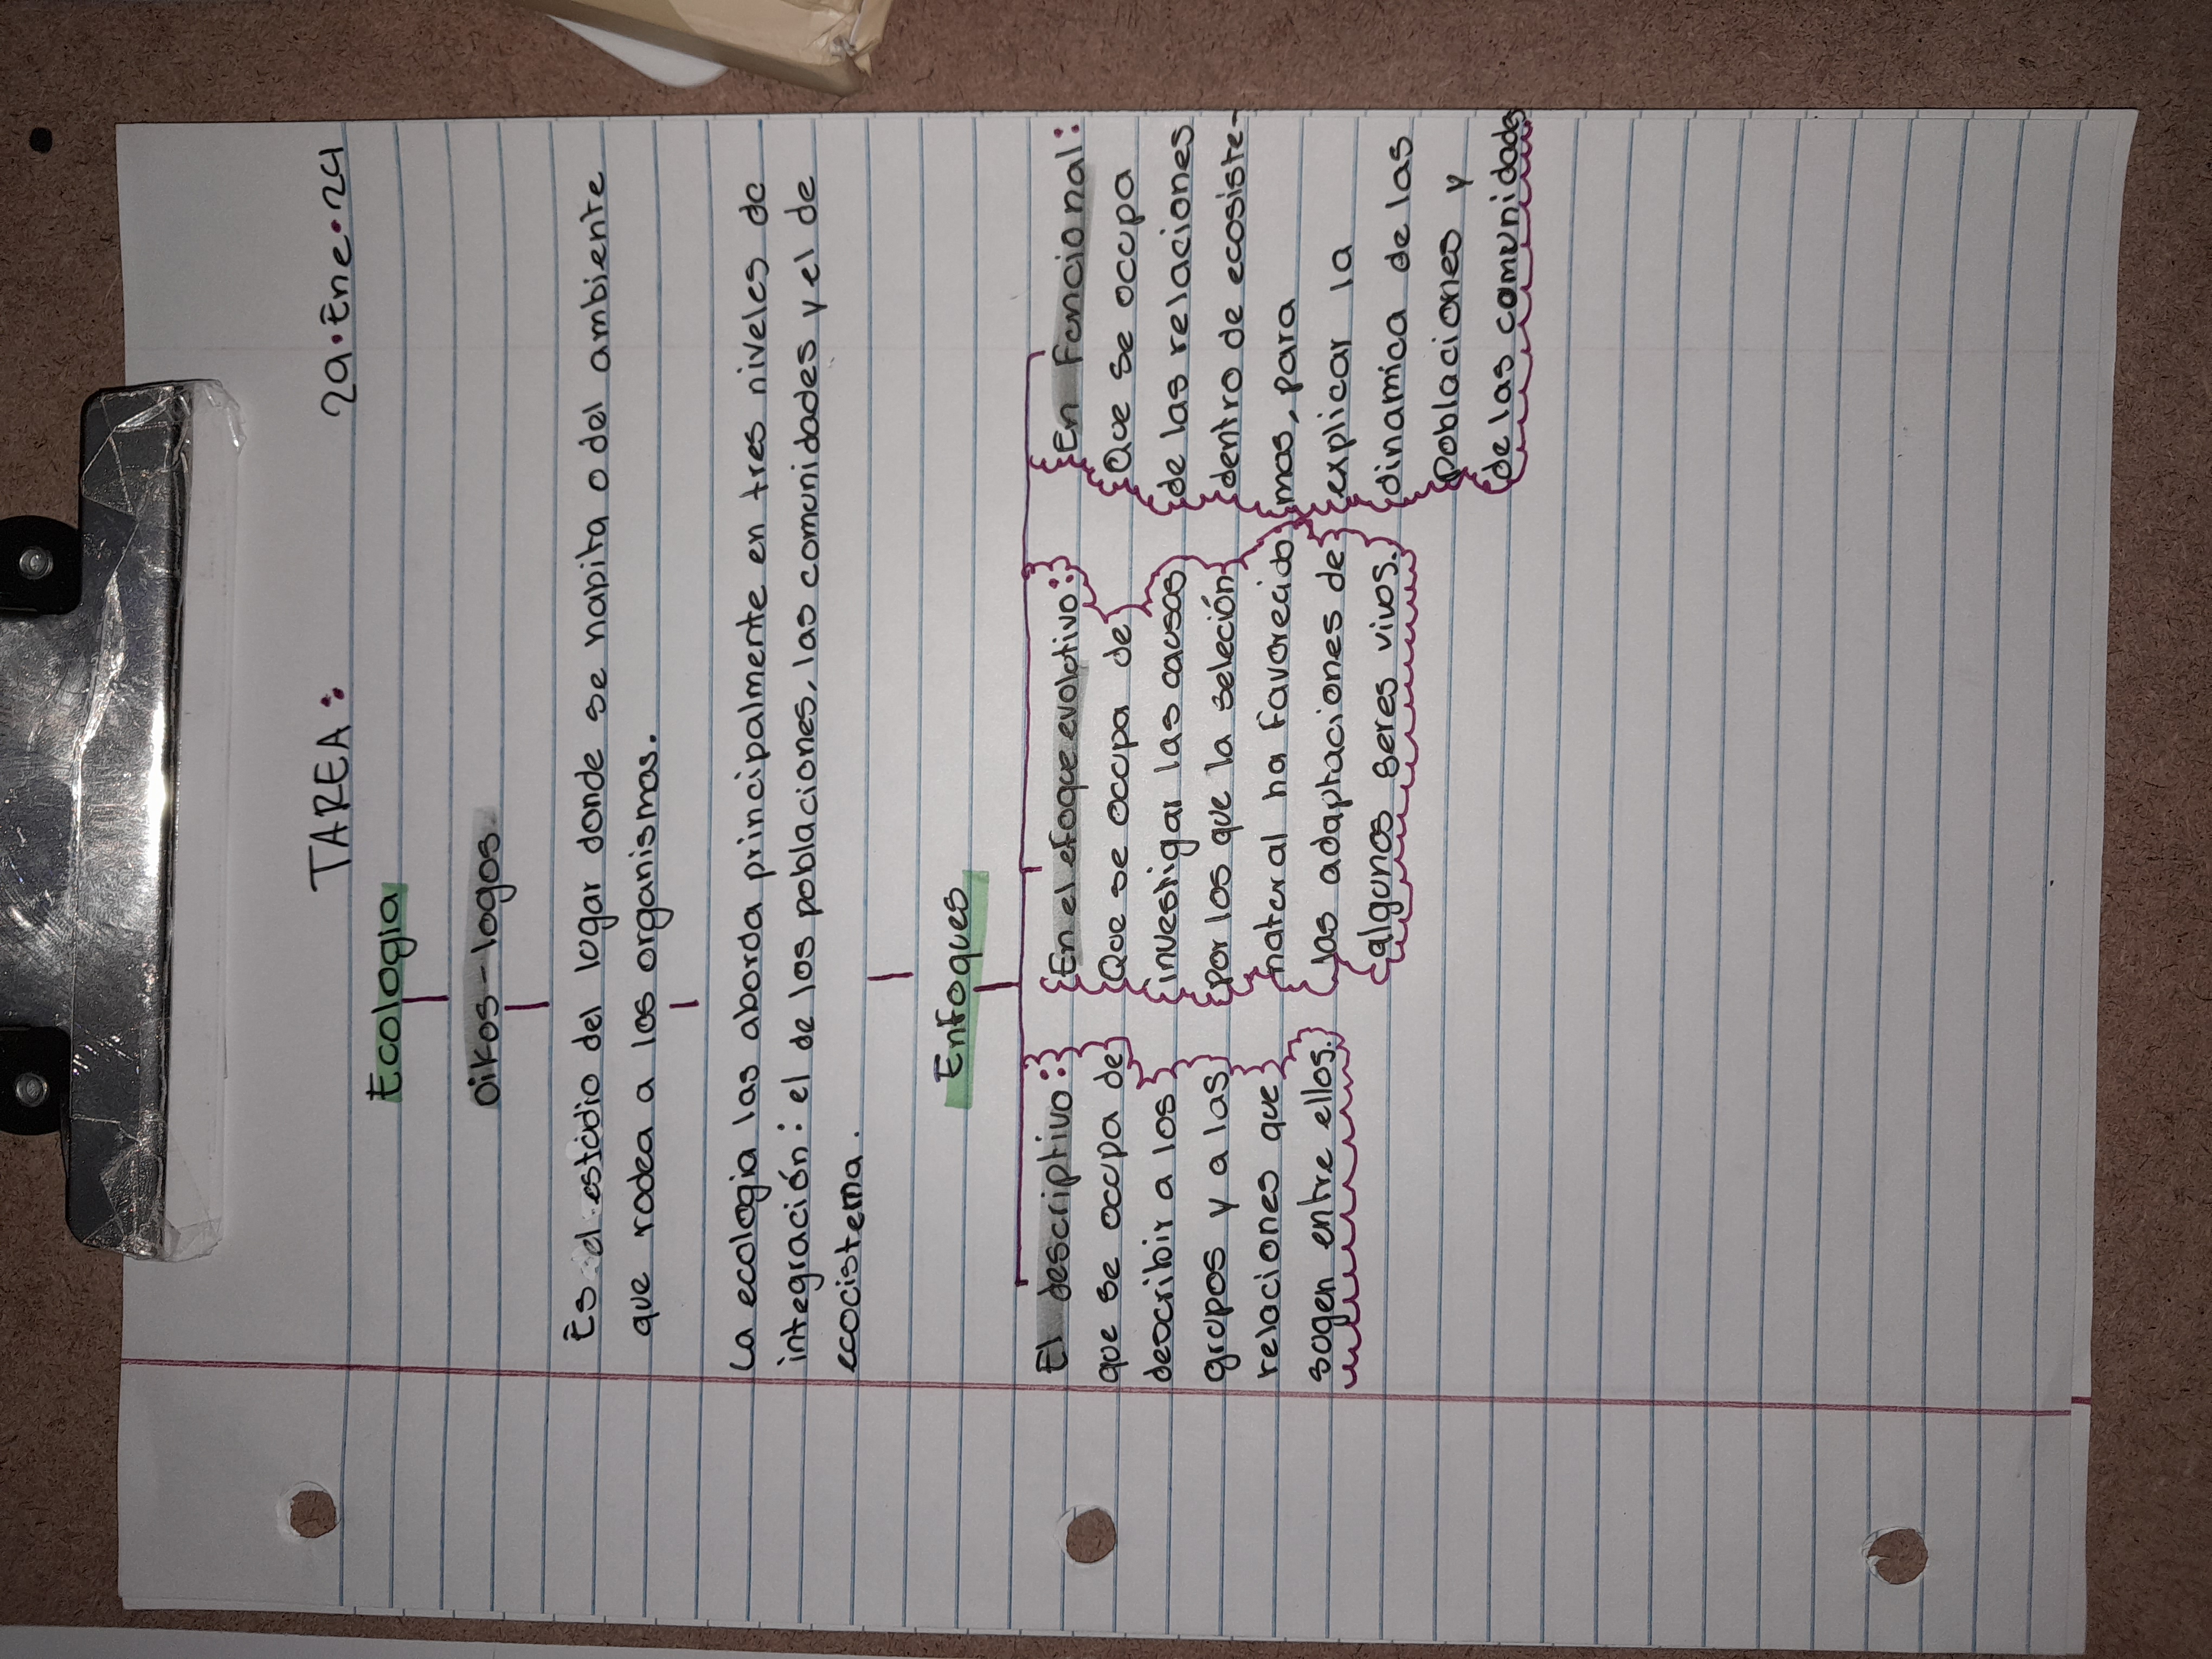 TAREA:
29.Ene.24
Ecologia
Oikos-logos.
Es el estudio del lugar donde se napita o del ambiente
que rodea a los organismos.
La ecologia las aborda principalmente en tres niveles de
integración: el de los poblaciones, las comunidades y el de
ecocistema.
Enfoques
El descriptivo:
que se ocupa de
describir a los
grupos y a las
relaciones que
sugen entre ellos.
En el efoque evolutivo:
Que se ocupa de
investigar las causas
por los que la seleción
natural ha favorecido
las adaptaciones de
algunos seres vivos.
En funcional:
Que se ocupa
de las relaciones
dentro de ecosiste-
mas, para
explicar la
dinamica de las
poblaciones y
de las comunidades